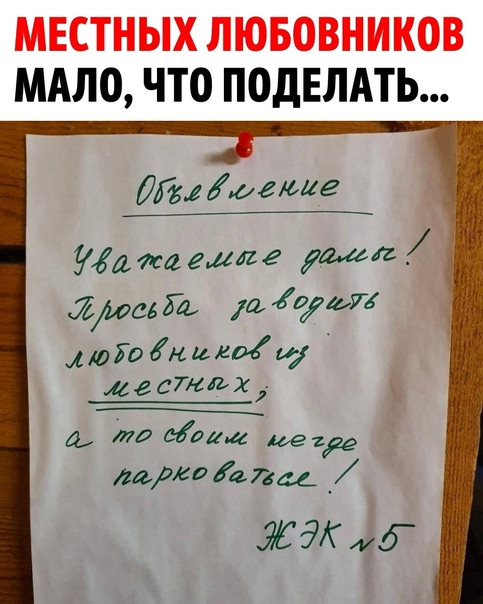 МЕСТНЫХ ЛЮБОВНИКОВ
МАЛО, ЧТО ПОДЕЛАТЬ...
Объявление
Уважаемые дамы!
Просьба заводить
любовников из
местных,
а то своим негде
парковаться!
ЖЭК №5